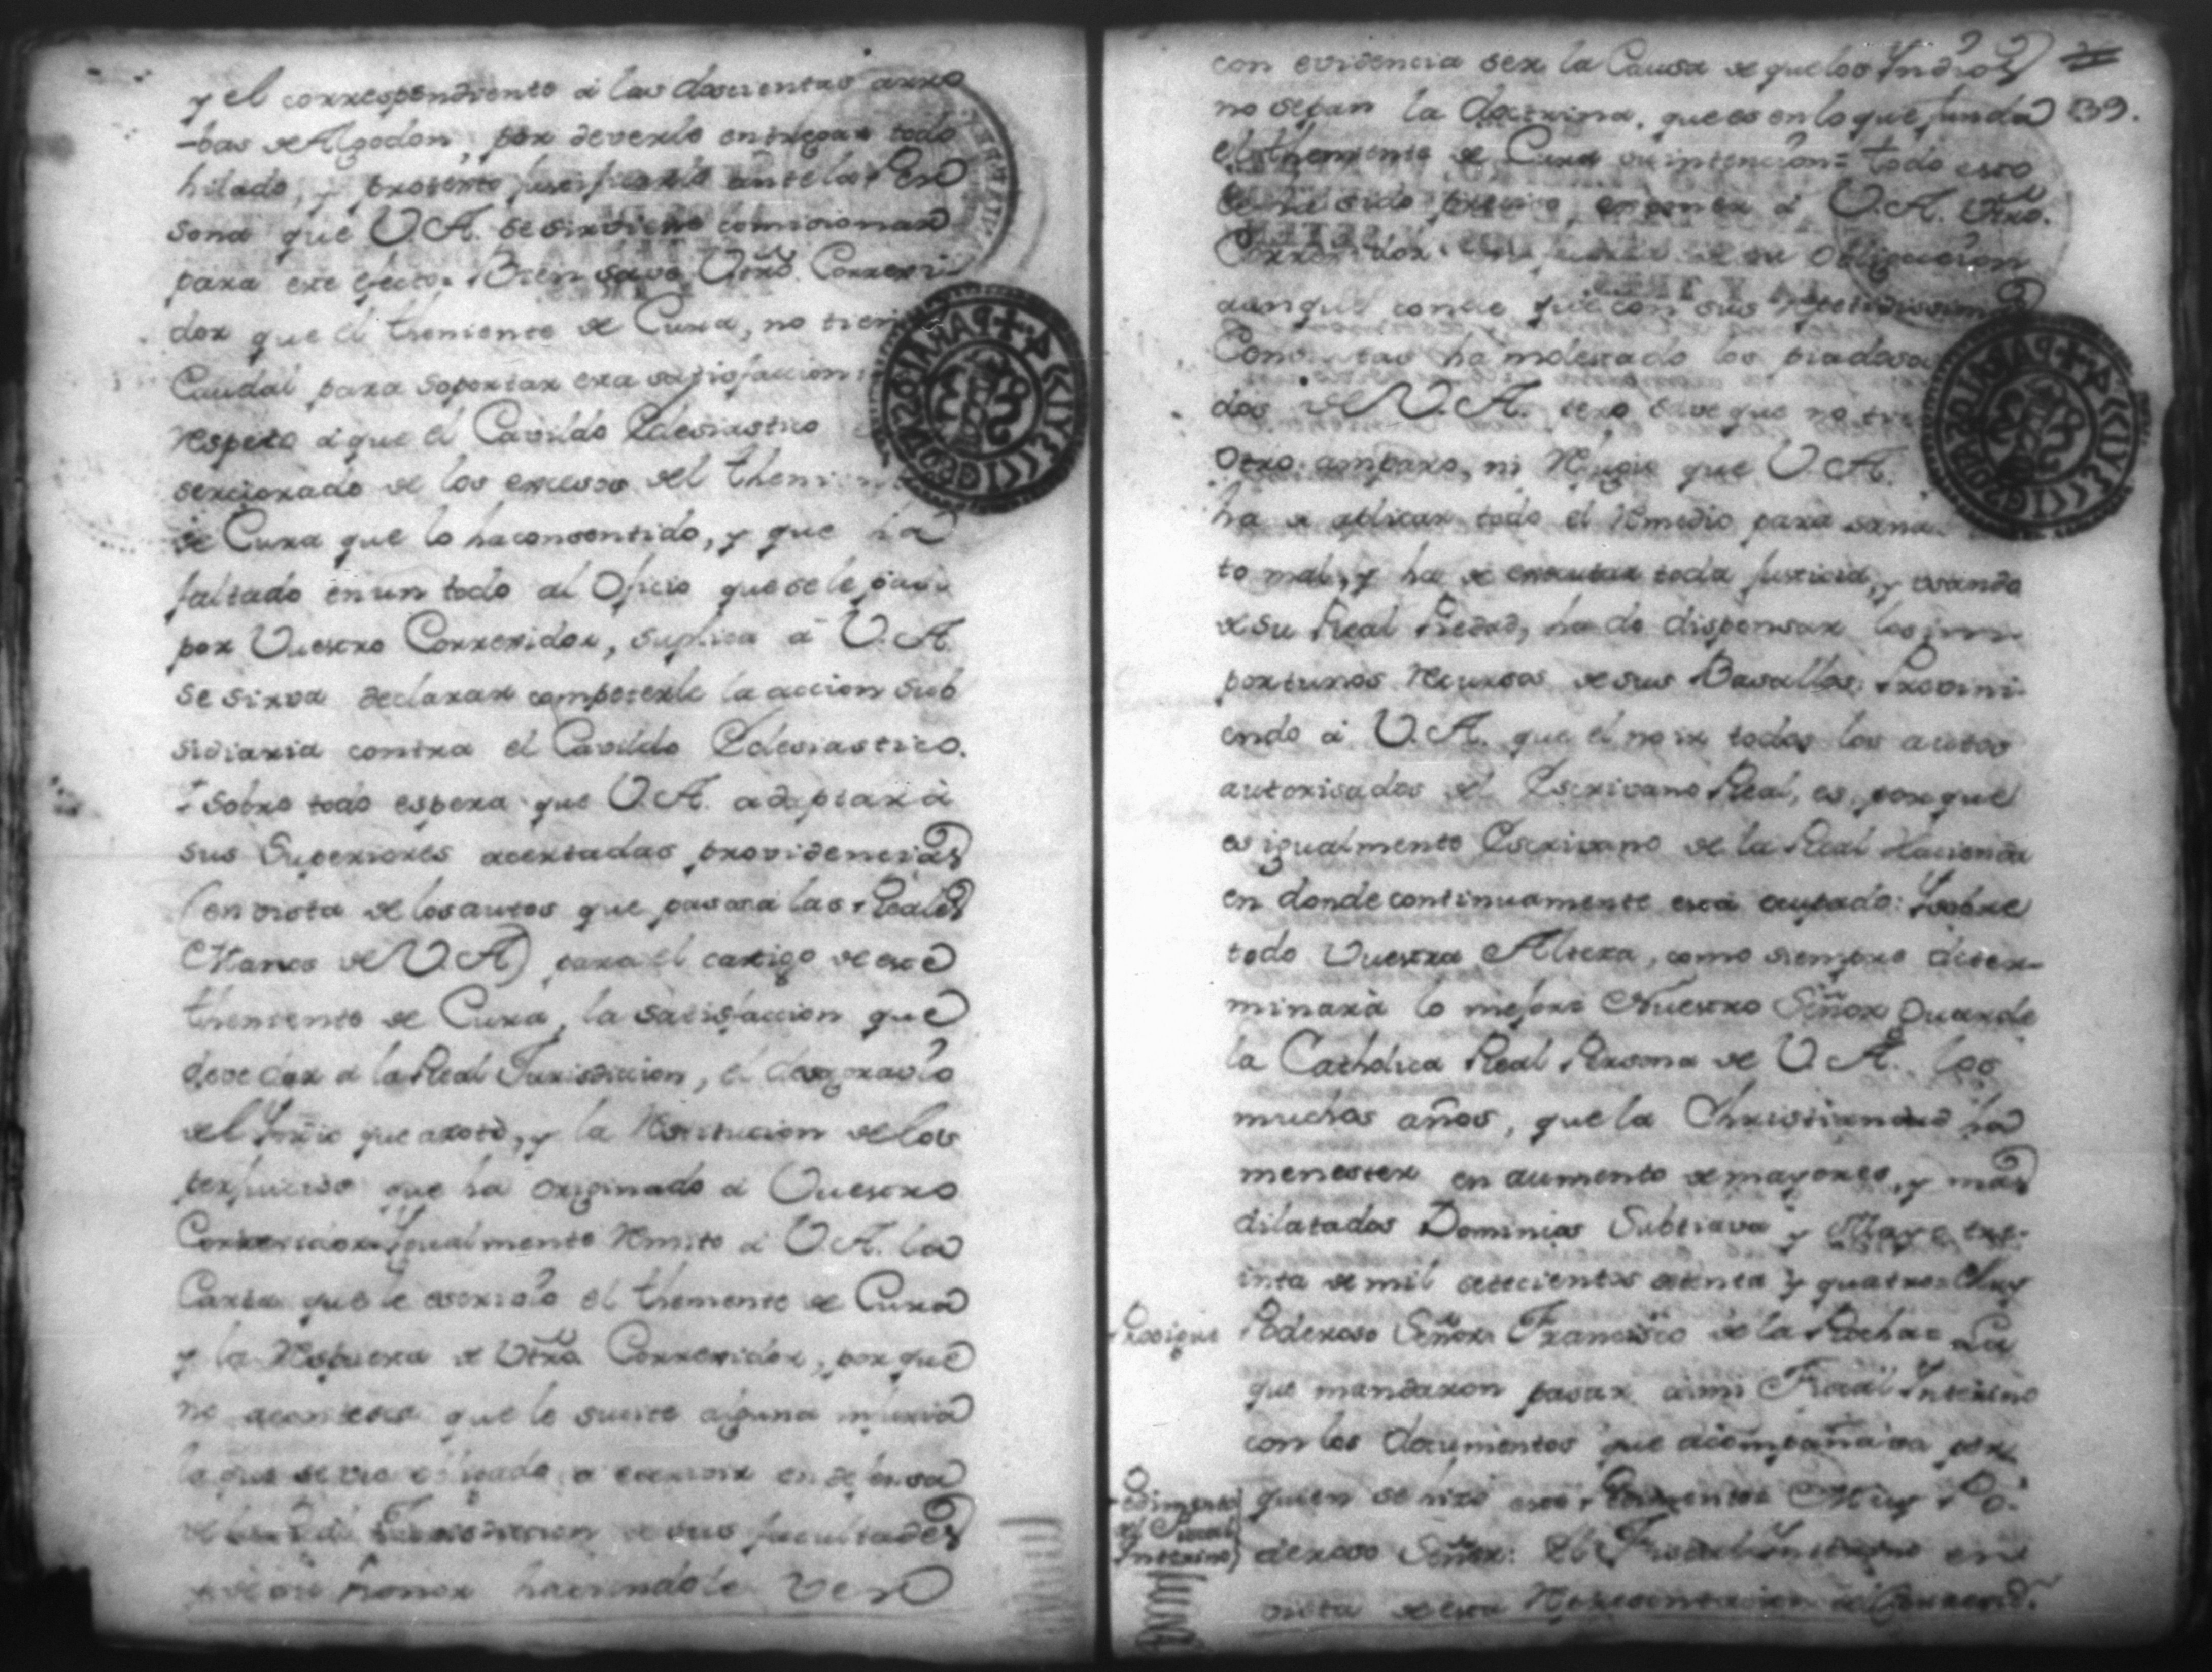 y el correspondiente á las doscientas arro
-bas de Algodon, por deverlo entregar todo
hilado, y protexto justificarlo ante la Per
sona que V.A. se sirviere comisionar
para este efecto. Bien save Vtrõ. Correxi
dor que el theniente de Cura, no tiene
Caudal para soportar esta satisfaccion
respeto á que el Cavildo Eclesiastico
serciorado de los excesos del theniente
de Cura que lo ha consentido, y que ha
faltado en un todo al Oficio que se le paso
por Vuestro Correxidor, suplica á V.A.
se sirva declarar competerle la accion sub
sidiaria contra el Cavildo Eclesiastico.
Y Sobre todo espera que V.A. adaptará
sus Superiores acertadas providencias
(en vista de los autos que pasará las Reales
Manos de V.A.) para el castigo de este
theniente de Cura, la satisfaccion que
deve dar á la Real Jurisdicion, el desagravio
del Yndio que azotó, y la Restitucion de los
perjuicios que ha originado á Vuestro
Correxidor. Ygualmente Remito á V.A. la
Carta que le escrivió el theniente de Cura
y la Respuesta de Vtrõ Correxidor, por que
no acontesca que le sucite alguna injuria
la que se vio obligado á escrivir en defensa
de la Real Jurisdiccion de sus facultades
y de su honor haciendole ver
39.
con evidencia ser la Causa de que los Yndios
no sepan la doctrina, que es en lo que funda
el theniente de Cura su intencion = todo esto
le ha sido preciso, exponer á V.A. Vtrõ.
Correxidor en fuerza de su obligacion
aunque conoce que con sus repetidissimas
Consultas ha molestado los piadosos
dos de V.A. pero save que no tiene
otro amparo, ni Refugio que V.A.
ha de aplicar todo el Remedio para sanar
to mal, y ha de executar toda Justicia, y usando
de su Real Piedad, ha de dispensar los im
portunos Recursos de sus Basallos; Previni
endo á V.A. que el no ir todos los autos
autorisados del Escrivano Real, es, por que
es igualmente Escrivano de la Real Hacienda
en donde continuamente está ocupado: Y sobre
todo Vuestra Alteza, como siempre deter-
minará lo mejor = Nuestro Señor Guarde
la Catholica Real Persona de V.A. los
muchos años, que la Christiandad ha
menester en aumento de mayores, y mas
dilatados Dominios Subtiava y Mayo tre-
inta de mil setecientos setenta y quatro = Muy
Prosigue
Poderoso Señor. Francisco de la Rocha = La
que mandaron pasar á mi Fiscal Ynterino
con los documentos que acompañava por
Pedimento
del Fiscal
Ynterino
quien se hizo este Pedimento = Muy Po-
deroso Señor: El Fiscal Ynterino en
vista de esta Representacion del Correxid.r